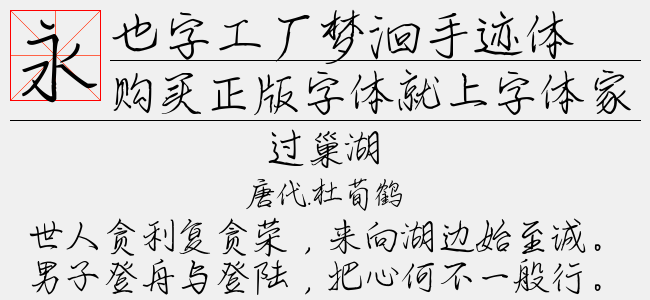 永
也字工厂梦洄手迹体
购买正版字体就上字体家
过巢湖
唐代.杜荀鹤
世人贪利复贪荣，来向湖边始至诚。
男子登舟与登陆，把心何不一般行。